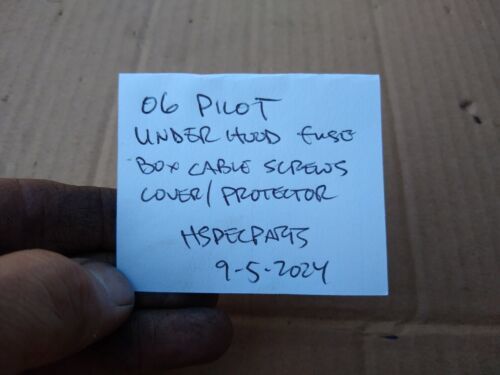 06 PILOT
UNDER HOOD FUSE
BOX CABLE SCREWS
COVER/PROTECTOR
HSPECPARTS
9-5-2024